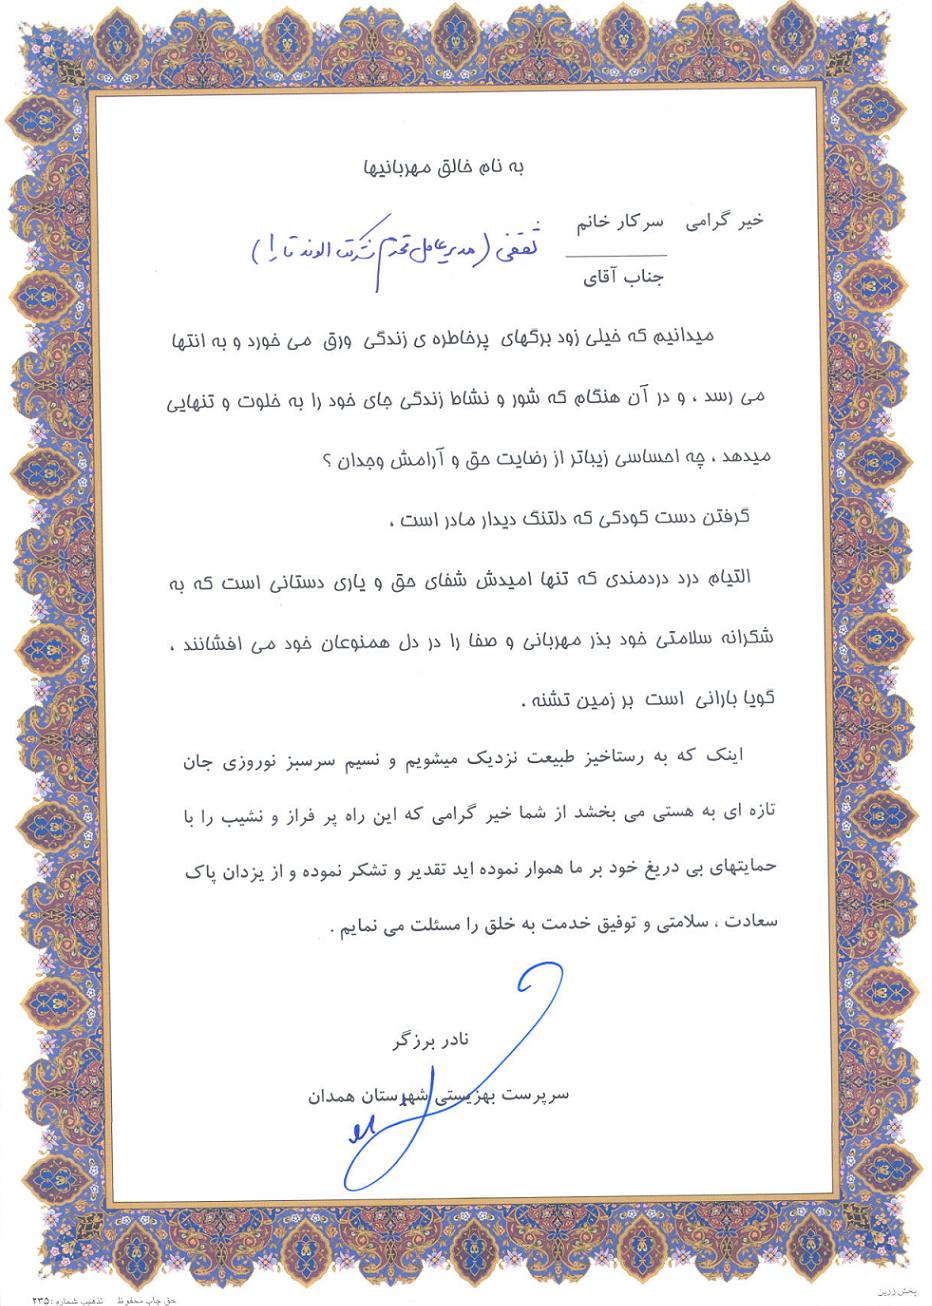 به نام خالق مهربانیها
خیر گرامی سرکار خانم
جناب آقای
ثقفی (مدیرعامل محترم شرکت الوند تارا)
میدانیم که خیلی زود برگهای پرخاطره ی زندگی ورق می خورد و به انتها
می رسد ، و در آن هنگام که شور و نشاط زندگی جای خود را به خلوت و تنهایی
میدهد ، چه احساسی زیباتر از رضایت حق و آرامش وجدان ؟
گرفتن دست کودکی که دلتنگ دیدار مادر است ،
التیام درد دردمندی که تنها امیدش شفای حق و یاری دستانی است که به
شکرانه سلامتی خود بذر مهربانی و صفا را در دل همنوعان خود می افشانند ،
گویا بارانی است بر زمین تشنه .
اینک که به رستاخیز طبیعت نزدیک میشویم و نسیم سرسبز نوروزی جان
تازه ای به هستی می بخشد از شما خیر گرامی که این راه پر فراز و نشیب را با
حمایتهای بی دریغ خود بر ما هموار نموده اید تقدیر و تشکر نموده و از یزدان پاک
سعادت ، سلامتی و توفیق خدمت به خلق را مسئلت می نمایم .
نادر برزگر
سرپرست بهزیستی شهرستان همدان
پخش زرین
حق چاپ محفوظ تذهیب شماره : ۲۳۵